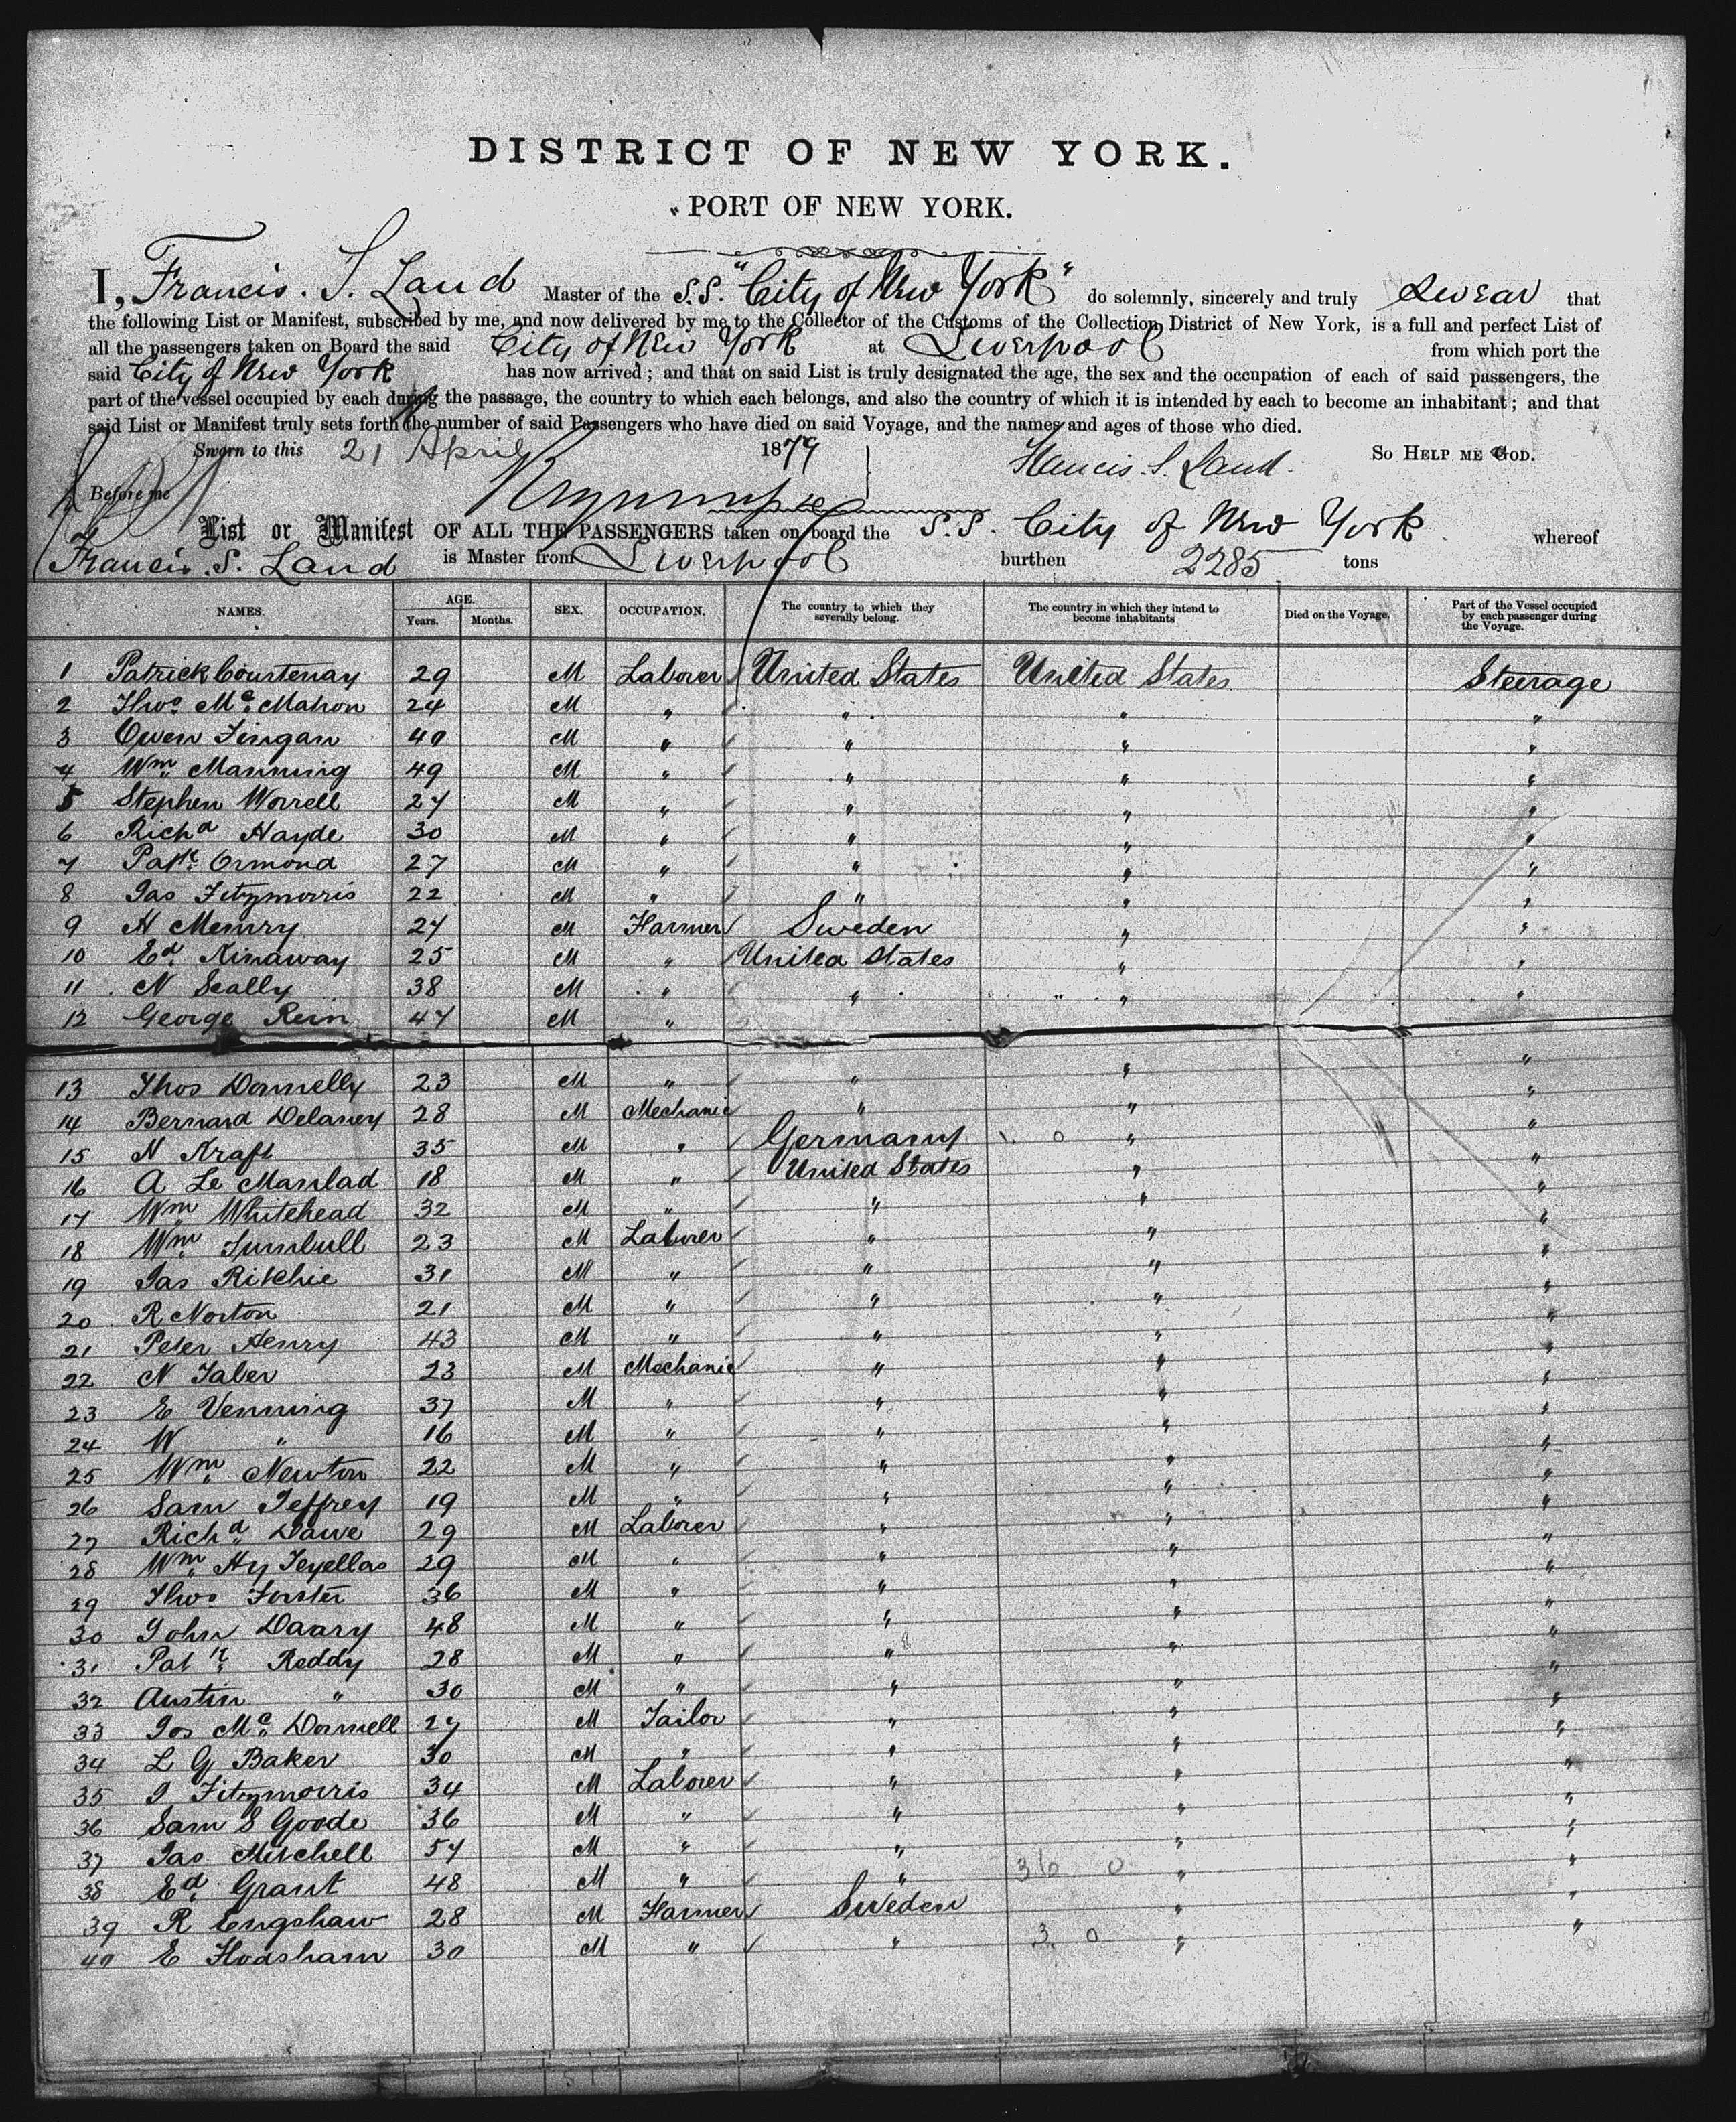 DISTRICT OF NEW YORK.
PORT OF NEW YORK.
I, Francis. S. Land Master of the S.S. "City of New York" do solemnly, sincerely and truly Swear that
the following List or Manifest, subscribed by me, and now delivered by me to the Collector of the Customs of the Collection District of New York, is a full and perfect List of
all the passengers taken on Board the said City of New York at Liverpool from which port the
said City of New York has now arrived; and that on said List is truly designated the age, the sex and the occupation of each of said passengers, the
part of the vessel occupied by each during the passage, the country to which each belongs, and also the country of which it is intended by each to become an inhabitant; and that
said List or Manifest truly sets forth the number of said Passengers who have died on said Voyage, and the names and ages of those who died.
Sworn to this 21 April 1879 Francis. S. Land. So HELP ME GOD.
Before me
List or Manifest OF ALL THE PASSENGERS taken on board the S.S. City of New York whereof
Francis. S. Land is Master from Liverpool burthen 2285 tons
NAMES. AGE. Years. Months. SEX. OCCUPATION. The country to which they severally belong. The country in which they intend to become inhabitants Died on the Voyage. Part of the Vessel occupied by each passenger during the Voyage.
1 Patrick Courtenay 29 M Laborer United States United States Steerage
2 Thos. Mc. Mahon 24 M " " " "
3 Owen Fingan 40 M " " " "
4 Wm. Manning 49 M " " " "
5 Stephen Worrell 27 M " " " "
6 Richd Hayde 30 M " " " "
7 Patk. Ormond 27 M " " " "
8 Jas Fitzmorris 22 M " " " "
9 H Memry 27 M Farmer Sweden " "
10 Ed. Kinaway 25 M " United States " "
11 N Scally 38 M " " " "
12 George Rein 47 M "
13 Thos Donnelly 23 M " " " "
14 Bernard Delaney 28 M Mechanic " " "
15 N Kraft 35 M " Germany " "
16 A Le Manlad 18 M " United States " "
17 Wm. Whitehead 32 M " " " "
18 Wm. Turnbull 23 M Laborer " " "
19 Jas Ritchie 31 M " " " "
20 R Norton 21 M " " " "
21 Peter Henry 43 M " " " "
22 N Taber 23 M Mechanic " " "
23 E Venning 37 M " " " "
24 W " 16 M " " " "
25 Wm. Newton 22 M " " " "
26 Sam Jeffrey 19 M " " " "
27 Richd. Dawe 29 M Laborer " " "
28 Wm. Hy Teyellas 29 M " " " "
29 Thos Forster 36 M " " " "
30 John Daary 48 M " " " "
31 Patk. Reddy 28 M " " " "
32 Austin " 30 M " " " "
33 Jos Mc. Donnell 27 M Tailor " " "
34 L G Baker 30 M " " " "
35 J Fitzmorris 34 M Laborer " " "
36 Sam S Goode 36 M " " " "
37 Jas Mitchell 57 M " " " "
38 Ed. Grant 48 M " " " "
39 R Engshaw 28 M Farmer Sweden " "
40 E Hodsham 30 M " " " "